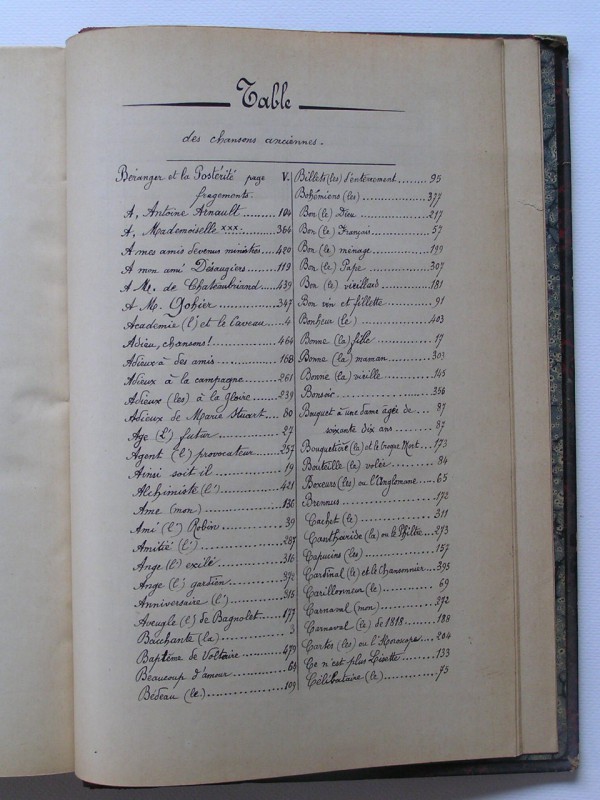 Table
des chansons anciennes.
Béranger et la Postérité page V.
fragements.
A, Antoine Arnault 104
A, Mademoiselle xxx. 364
A mes amis devenus ministres 420
A mon ami Désaugiers 119
A M. de Chateaubriand 439
A M. Gohier 347
Academie (l') et le Caveau 4
Adieu, chansons! 464
Adieux à des amis 168
Adieux à la campagne 261
Adieux (les) à la gloire 239
Adieux de Marie Stuart 80
Age (L') futur 27
Agent (l') provocateur 257
Ainsi soit il 19
Alchimiste (l') 421
Ame (mon) 130
Ami (l') Robin 39
Amitié (l') 287
Ange (l') exilé 316
Ange (l') gardien 372
Anniversaire (l') 316
Aveugle (l') de Bagnolet 177
Bacchante (la) 3
Baptême de Voltaire 479
Beaucoup d'amour 64
Bedeau (le) 109
Billets (les) d'enterrement 95
Bohémiens (les) 377
Bon (le) Dieu 217
Bon (le) Français 57
Bon (le) ménage 199
Bon (le) Pape 307
Bon (le) vieillard 181
Bon vin et fillette 91
Bonheur (le) 403
Bonne (la) fille 17
Bonne (la) maman 303
Bonne (la) vieille 145
Bonsoir 356
Buquet à une dame âgée de 87
soixante dix ans 87
Bouquetière (la) et le Croque Mort 173
Bouteille (la) volée 84
Boxeurs (les) ou l'Anglomane 65
Brennus 172
Cachet (le) 311
Cantharide (la) ou le Philtre 273
Capucins (les) 157
Cardinal (le) et le Chansonnier 395
Carillonneur (le) 69
Carnaval (mon) 372
Carnaval (le) de 1818 188
Cartes (les) ou l'Horoscope 204
Ce n'est plus Lisette 133
Célibataire (le) 75